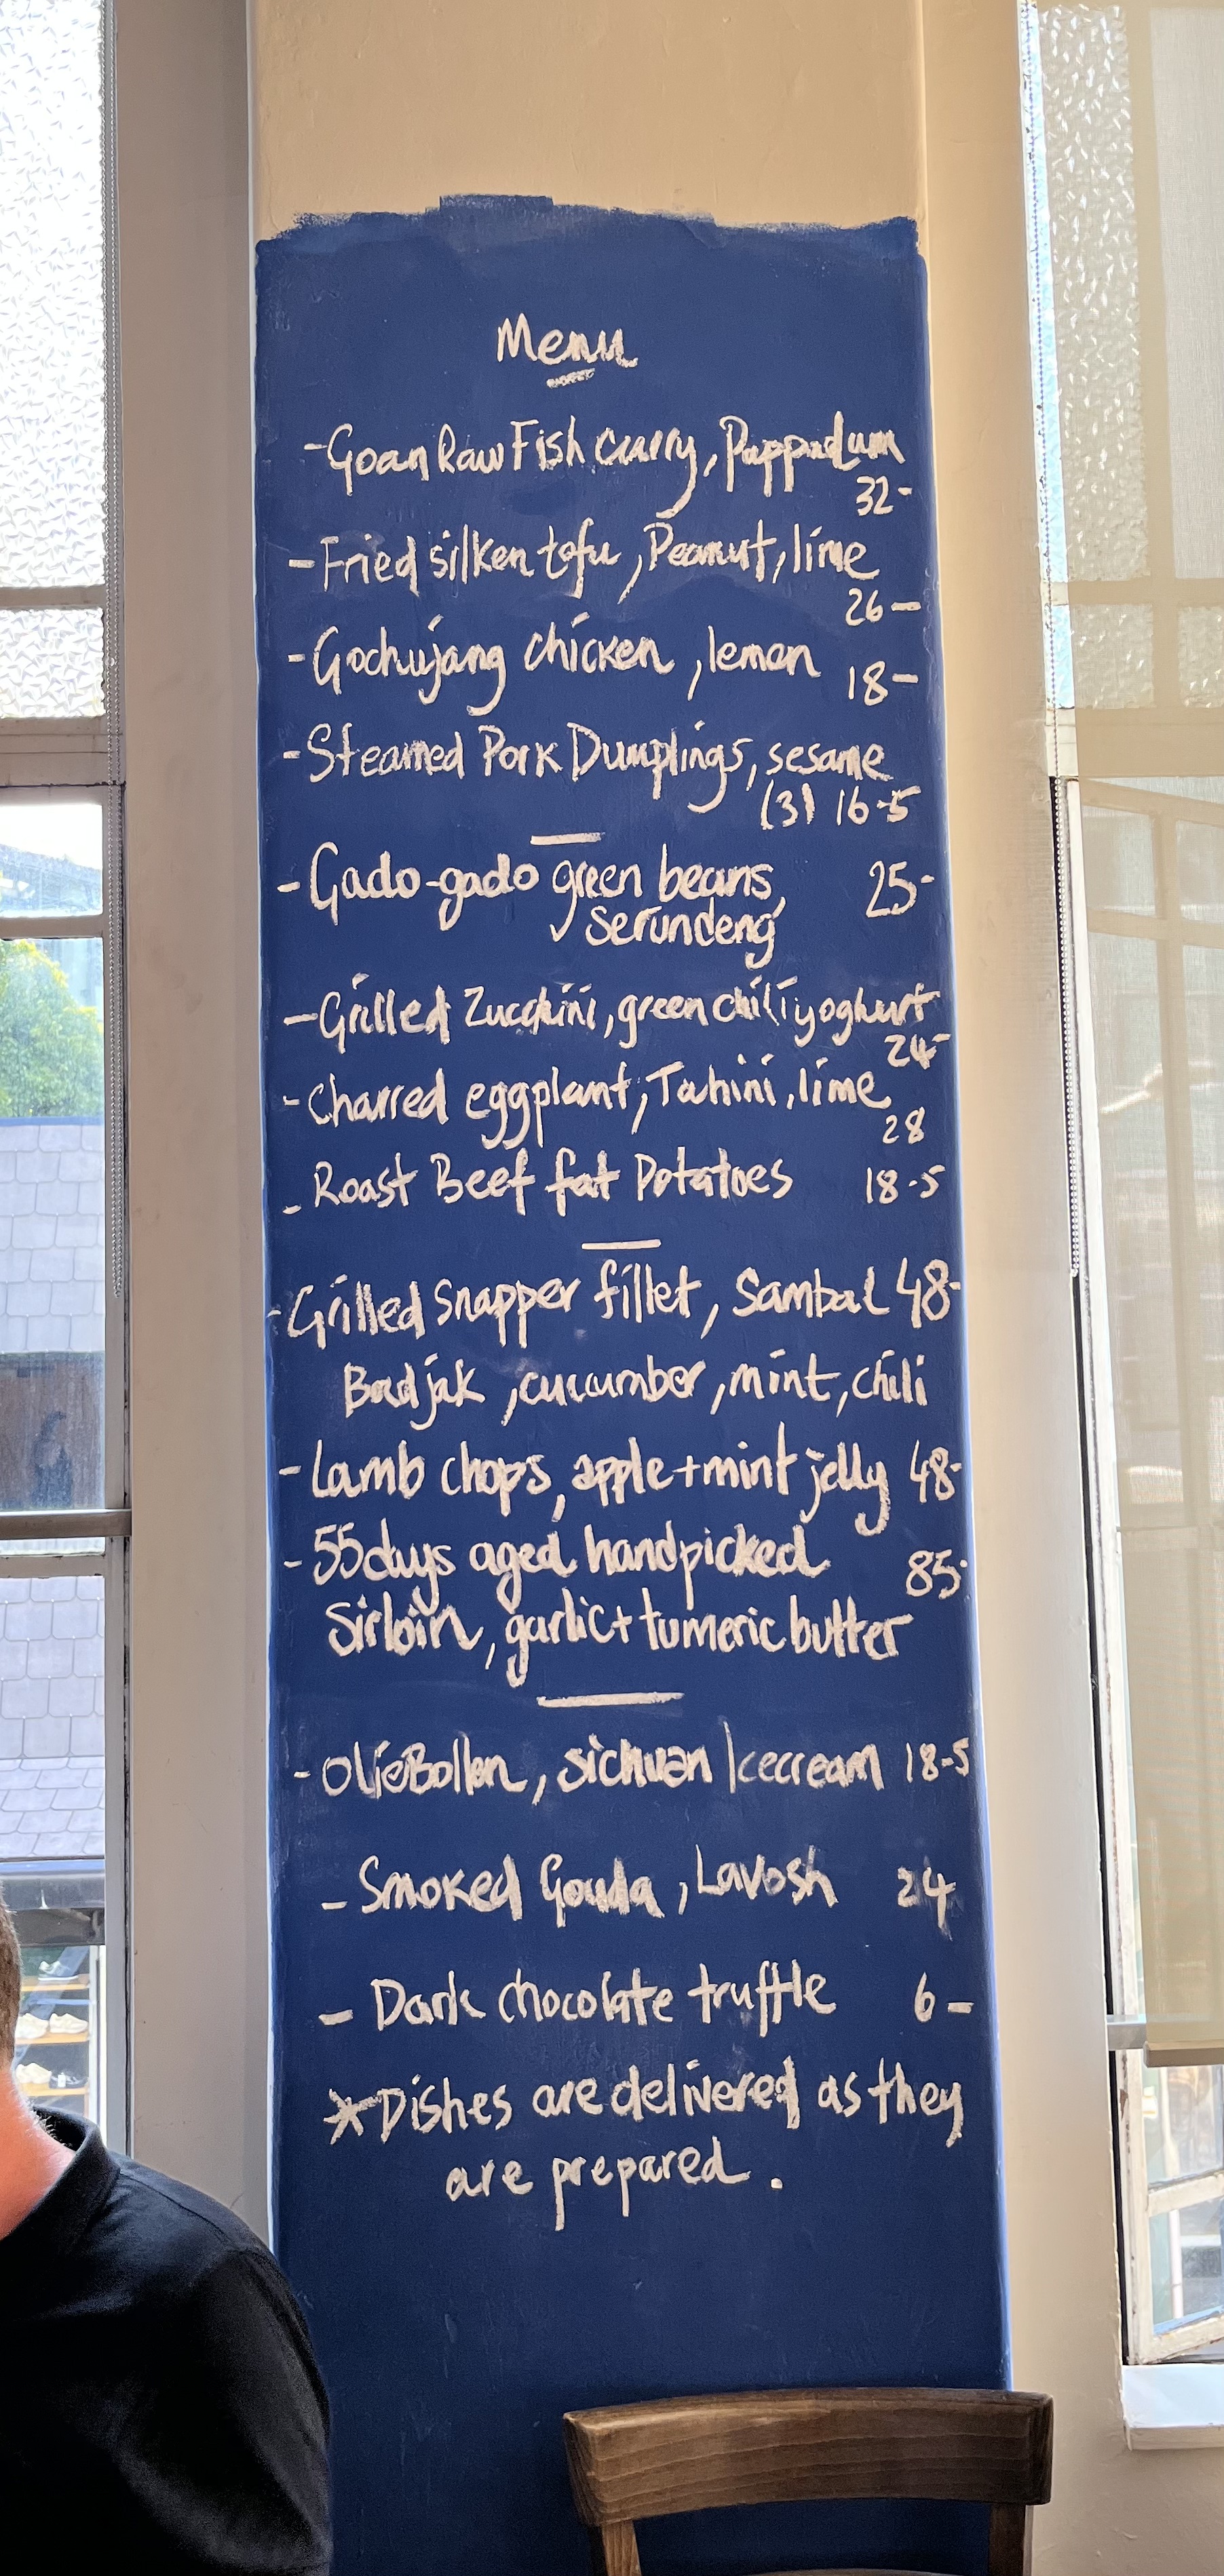 Menu
- Goan Raw Fish curry, Puppadum
32-
- Fried silken tofu, Peanut, lime
26-
- Gochujang chicken, lemon 18-
- Steamed Pork Dumplings, sesame
(3) 16.5
- Gado-gado green beans, 25-
serundeng
- Grilled Zucchini, green chili yoghurt
24-
- Charred eggplant, Tahini, lime
28
- Roast Beef fat Potatoes 18.5
- Grilled snapper fillet, Sambal 48-
Badjak, cucumber, mint, chili
- Lamb chops, apple + mint jelly 48-
- 55 days aged handpicked 85-
Sirloin, garlic + tumeric butter
- OlieBollen, sichuan Icecream 18-5
- Smoked Gouda, Lavosh 24
- Dark chocolate truffle 6-
* Dishes are delivered as they
are prepared.